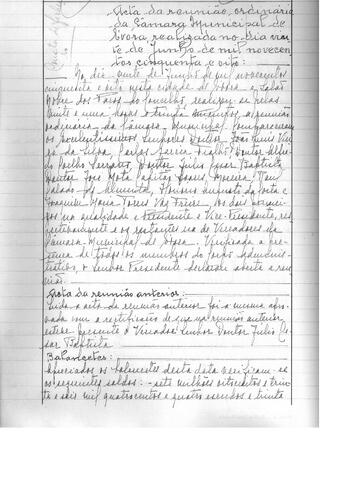 Acta da reunião ordinária
da Câmara Municipal de
Évora, realizada no dia vin
te de Junho de mil novecen
tos cinquenta e oito:
No dia vinte de Junho de mil novecentos
cinquenta e oito nesta cidade de Évora e Salão
Nobre dos Paços do Concelho realizou-se pelas
vinte e uma horas e trinta minutos, a reunião
ordinária da Câmara Municipal. Compareceram
os Excelentíssimos Senhores Doutor
da Silva, Carlos Doutor
Coelho Doutor Júlio Cesar Baptista
Doutor José Mota Capitão Moreira,
de Almeida, Augusto da Costa e
Joaquim Maria Torres Vaz Freire, os dois primeiros
na qualidade de Presidente e Vice-Presidente, res
pectivamente e os restantes na de Vereadores da
Câmara Municipal de Évora. Verificada a pre
sença de todos os membros do corpo adminis
trativo, o Senhor Presidente declarou aberta a reu
nião.
Acta da reunião anterior:
Lida a acta da reunião anterior foi a mesma apro
vada com a rectificação de que na reunião anterior
esteve presente o Vereador Senhor Doutor Júlio Ce
sar Baptista
Balancetes:
Apreciados os balancetes desta data verificaram-se
os seguintes saldos: - sete milhões oitocentos e trin
ta e seis mil quatrocentos e quatro escudos e trinta